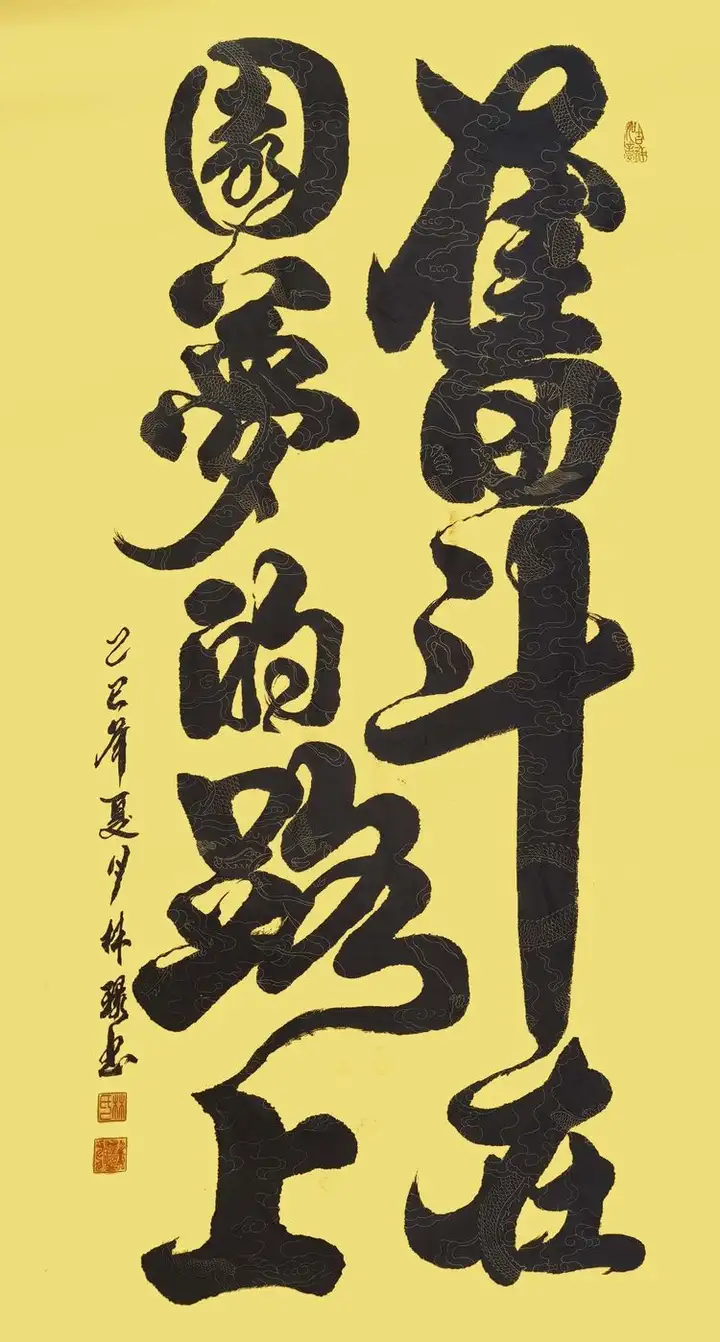 奮斗在
圓夢的路上
乙巳年夏月林
林氏